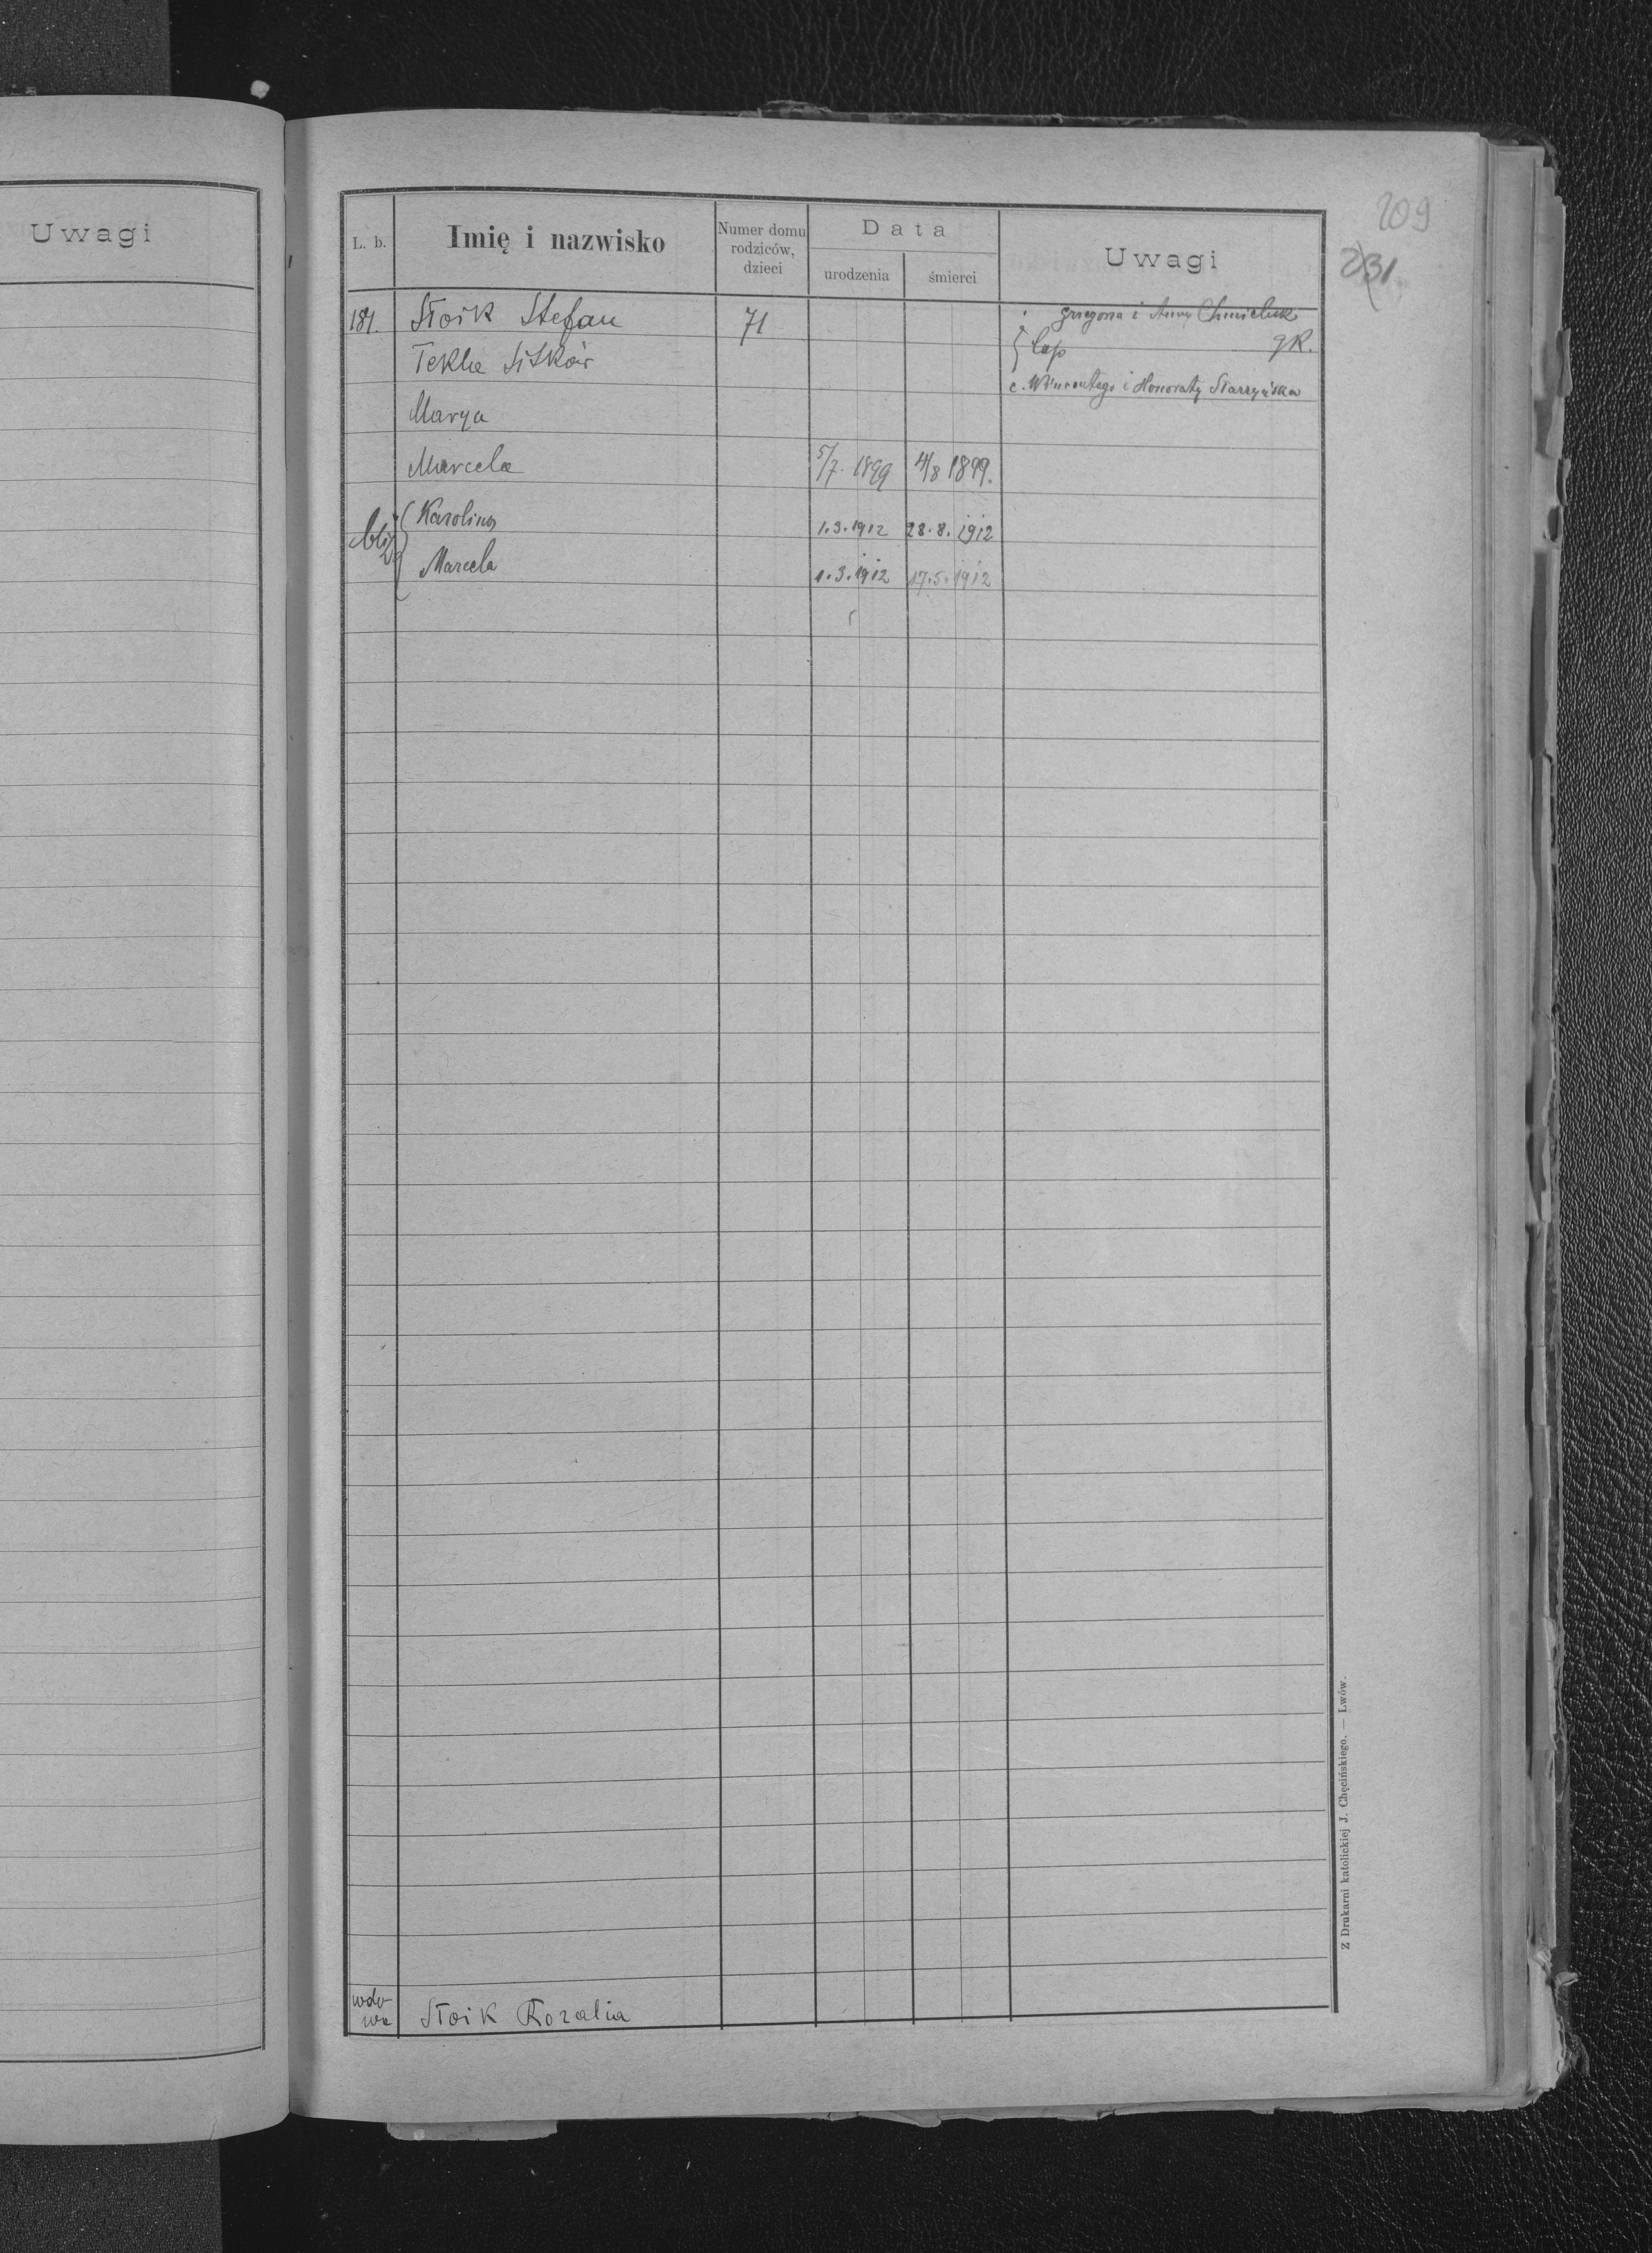 Uwagi
209
231
L. b. Imię i nazwisko Numer domu rodziców, dzieci Data urodzenia śmierci Uwagi
181. Stoik Stefan 71 Grzegorza i Anny Chmieluk
Tekla łac gk.
c. Wincentego i Honoraty Starzyńska
Marya
Marcela 5/7. 1899 4/8 1899.
bliź. Karolina 1.3.1912 28.8.1912
Marcela 1.3.1912 17.5.1912
wdo-
wa Stoik Rozalia
Z Drukarni katolickiej J. Chęcińskiego. — Lwów.